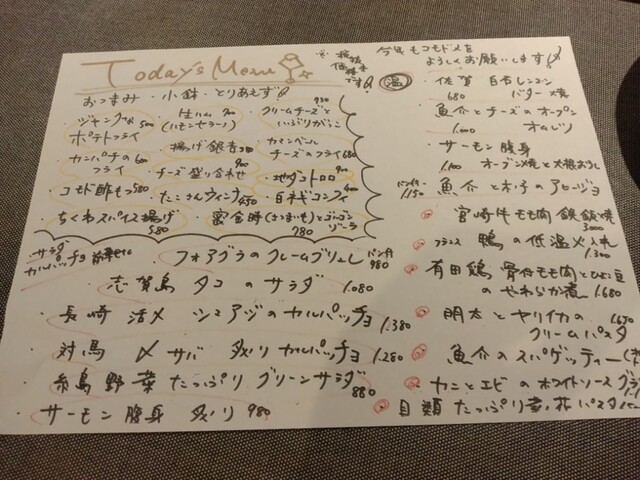 Today's Menu
※税抜
価格です
おつまみ・小鉢・とりあえず
ジャンクな 500
ポテトフライ
・生ハム 900
(ハモンセラーノ)
・クリームチーズと 930
いぶりがっこ
・カンパチの 600
フライ
・揚げ銀杏
・カマンベール
チーズのフライ 680
・コモド酢もつ 580
・チーズ盛り合わせ 900
・地ダコトロロ 900
・たこさんウィンナ 450
・白ネギコンフィ 400
・ちくわスパイス揚げ
580
・蜜金時(さつまいも)とゴルゴン
ゾーラ
780
サラダ
カルパッチョ 前菜など
・フォアグラのクレームブリュレ パン付 980
・志賀島 タコ の サラダ 1.080
・長崎 活〆 シマアジのカルパッチョ 1.380
・対馬 〆サバ 炙り カルパッチョ 1.280
・糸島野菜 たっぷり グリーンサラダ 880
・サーモン 腹身 炙り 980
今年もコモドスを
よろしくお願いします
温
・佐賀 白石レンコン
680 バター焼
・魚介とチーズのオーブン
1.000 オムレツ
・サーモン 腹身
1.100 オーブン焼と大根おろし
パン付
1.150 魚介 と キノ子 の アヒージョ
宮崎牛 モモ肉 鉄板焼
3000
フランス 鴨 の 低温火入れ
1.300
有田鶏 骨付もも肉とひよこ豆
の やわらか煮 1.680
明太 と ヤリイカの 1.650
クリームパスタ
魚介の スパゲッティー
カニとエビ の ホワイトソース グラ
貝類 たっぷり 菜ノ花 パスタ